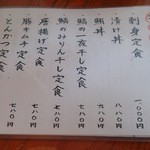 ・刺身定食 一〇〇〇円
・漬け丼 八八〇円
・鯵丼 八八〇円
・鯖の一夜干し定食 七八〇円
・鯖のみりん干し定食 七八〇円
・唐揚げ定食 七八〇円
・豚キムチ定食 七八〇円
・とんかつ定食 七八〇円